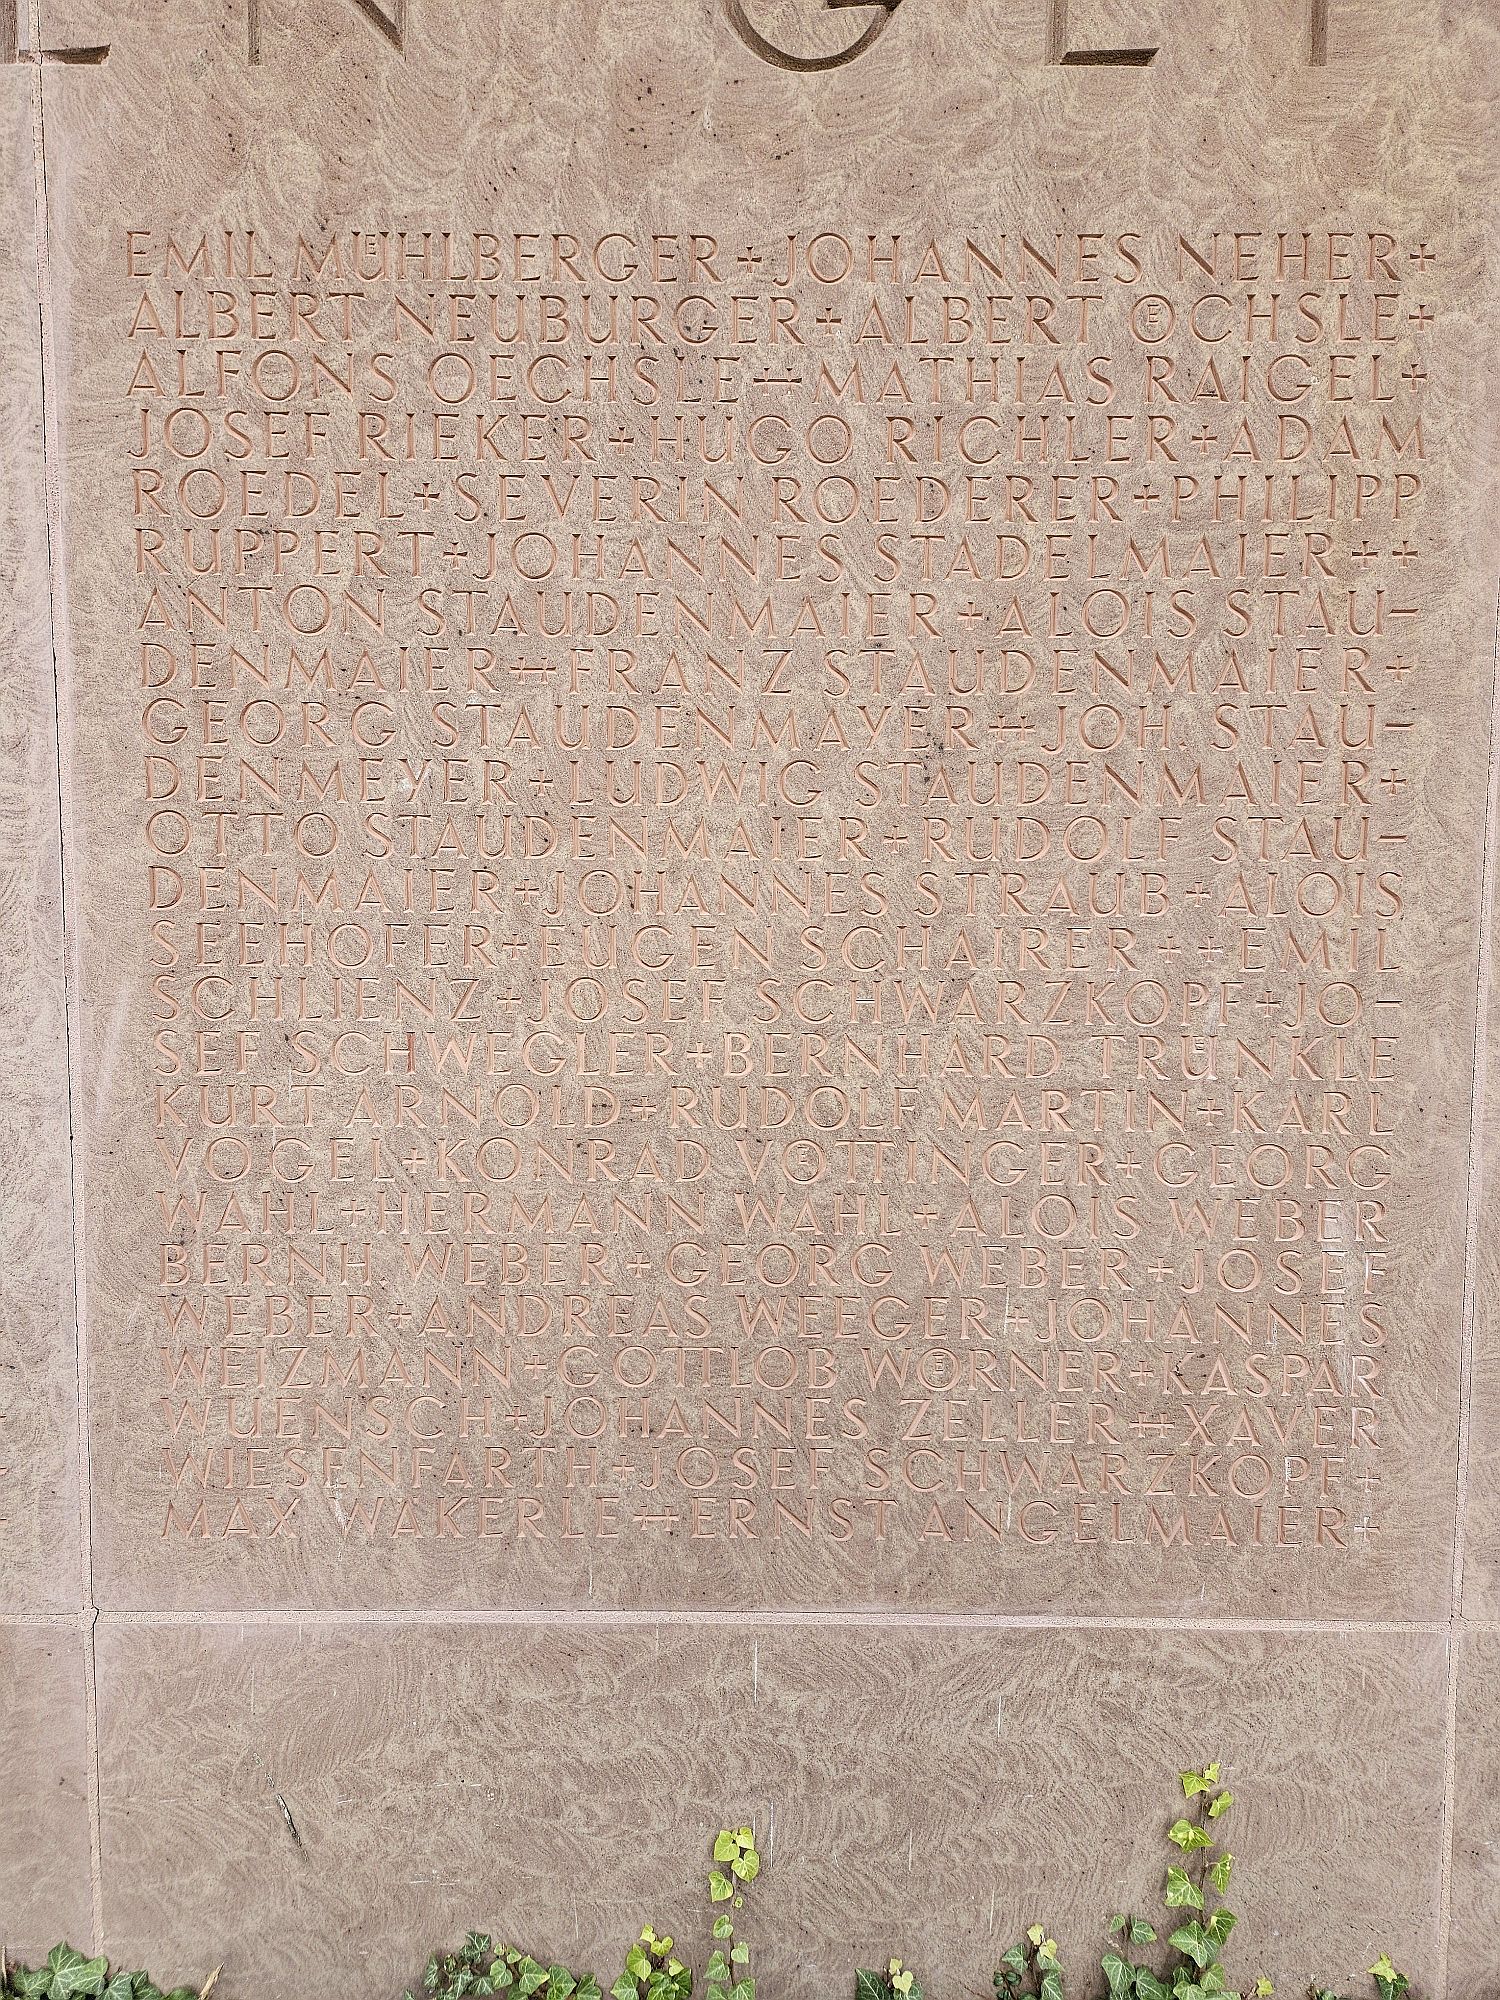 EMIL MÜHLBERGER + JOHANNES NEHER +
ALBERT NEUBURGER + ALBERT ÖCHSLE +
ALFONS OECHSLE ++ MATHIAS RAIGEL +
JOSEF RIEKER + HUGO RICHLER + ADAM
ROEDEL + SEVERIN ROEDERER + PHILIPP
RUPPERT + JOHANNES STADELMAIER ++
ANTON STAUDENMAIER + ALOIS STAU-
DENMAIER ++ FRANZ STAUDENMAIER +
GEORG STAUDENMAYER ++ JOH. STAU-
DENMEYER + LUDWIG STAUDENMAIER +
OTTO STAUDENMAIER + RUDOLF STAU-
DENMAIER + JOHANNES STRAUB + ALOIS
SEEHOFER + EUGEN SCHAIRER ++ EMIL
SCHLIENZ + JOSEF SCHWARZKOPF + JO-
SEF SCHWEGLER + BERNHARD TRÜNKLE
KURT ARNOLD + RUDOLF MARTIN + KARL
VOGEL + KONRAD VÖTTINGER + GEORG
WAHL + HERMANN WAHL + ALOIS WEBER
BERNH. WEBER + GEORG WEBER + JOSEF
WEBER + ANDREAS WEEGER + JOHANNES
WEIZMANN + GOTTLOB WÖRNER + KASPAR
WUENSCH + JOHANNES ZELLER ++ XAVER
WIESENFARTH + JOSEF SCHWARZKOPF +
MAX WAKERLE ++ ERNST ANGELMAIER +